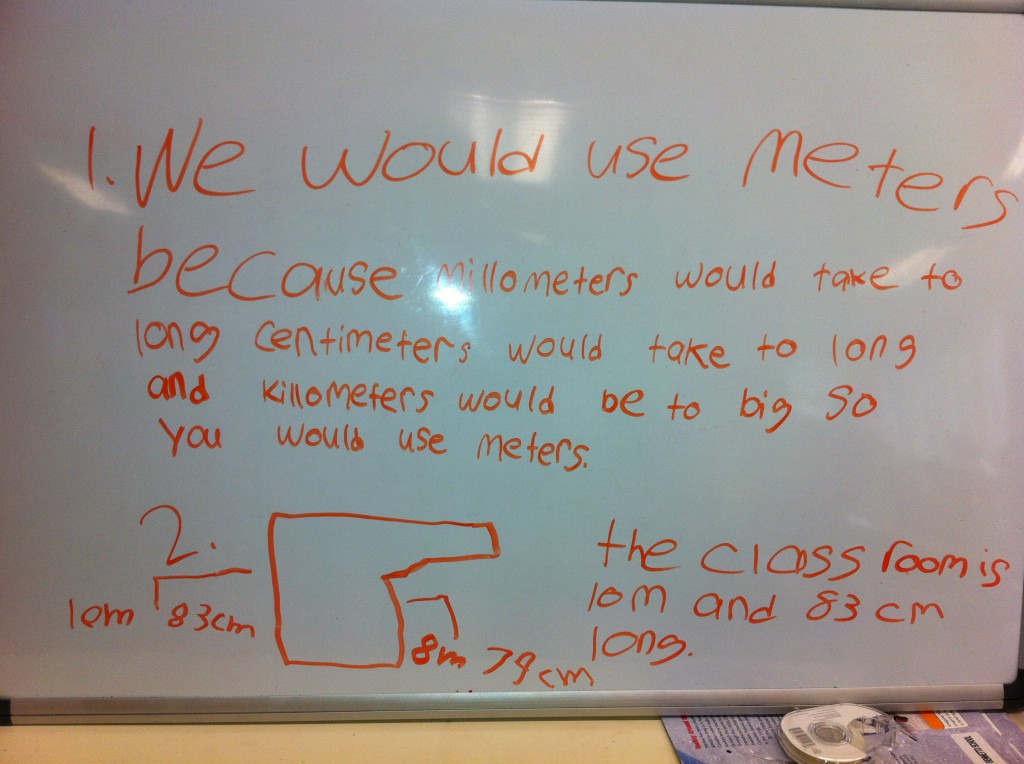 1. We would use meters
because millometers would take to
long centimeters would take to long
and killometers would be to big so
you would use meters.
2.
10m 83cm
8m 79cm
the classroom is
10m and 83cm
long.